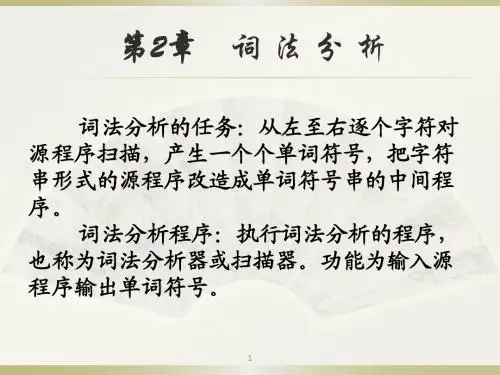 第2章 词法分析
词法分析的任务：从左至右逐个字符对
源程序扫描，产生一个个单词符号，把字符
串形式的源程序改造成单词符号串的中间程
序。
词法分析程序：执行词法分析的程序，
也称为词法分析器或扫描器。功能为输入源
程序输出单词符号。
1